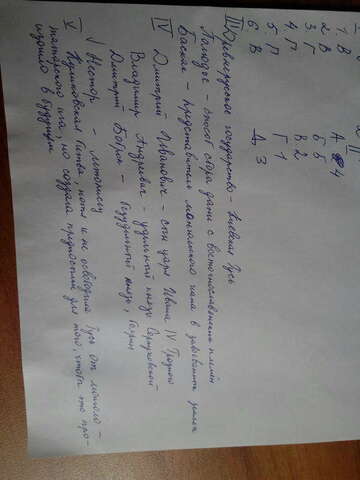 I
1 В
2 В
3 Г
4 П
5 П
6 В
II
А 4
Б 5
В 2
Г 1
Д 3
III Древнерусское государство - Киевская Русь
Полюдье - способ сбора дани с восточнославянских племён
Баскак - представитель монгольского хана в завоёванных землях
IV Дмитрий Иванович - сын царя Ивана IV Грозного
Владимир Андреевич - удельный князь Серпуховской
Дмитрий Боброк - безудельный князь, боярин
√ Нестор - летописец
V Куликовская битва, хотя и не освободила Русь от монголо-
татарского ига, но создала предпосылки для того, чтобы это про-
изошло в будущем